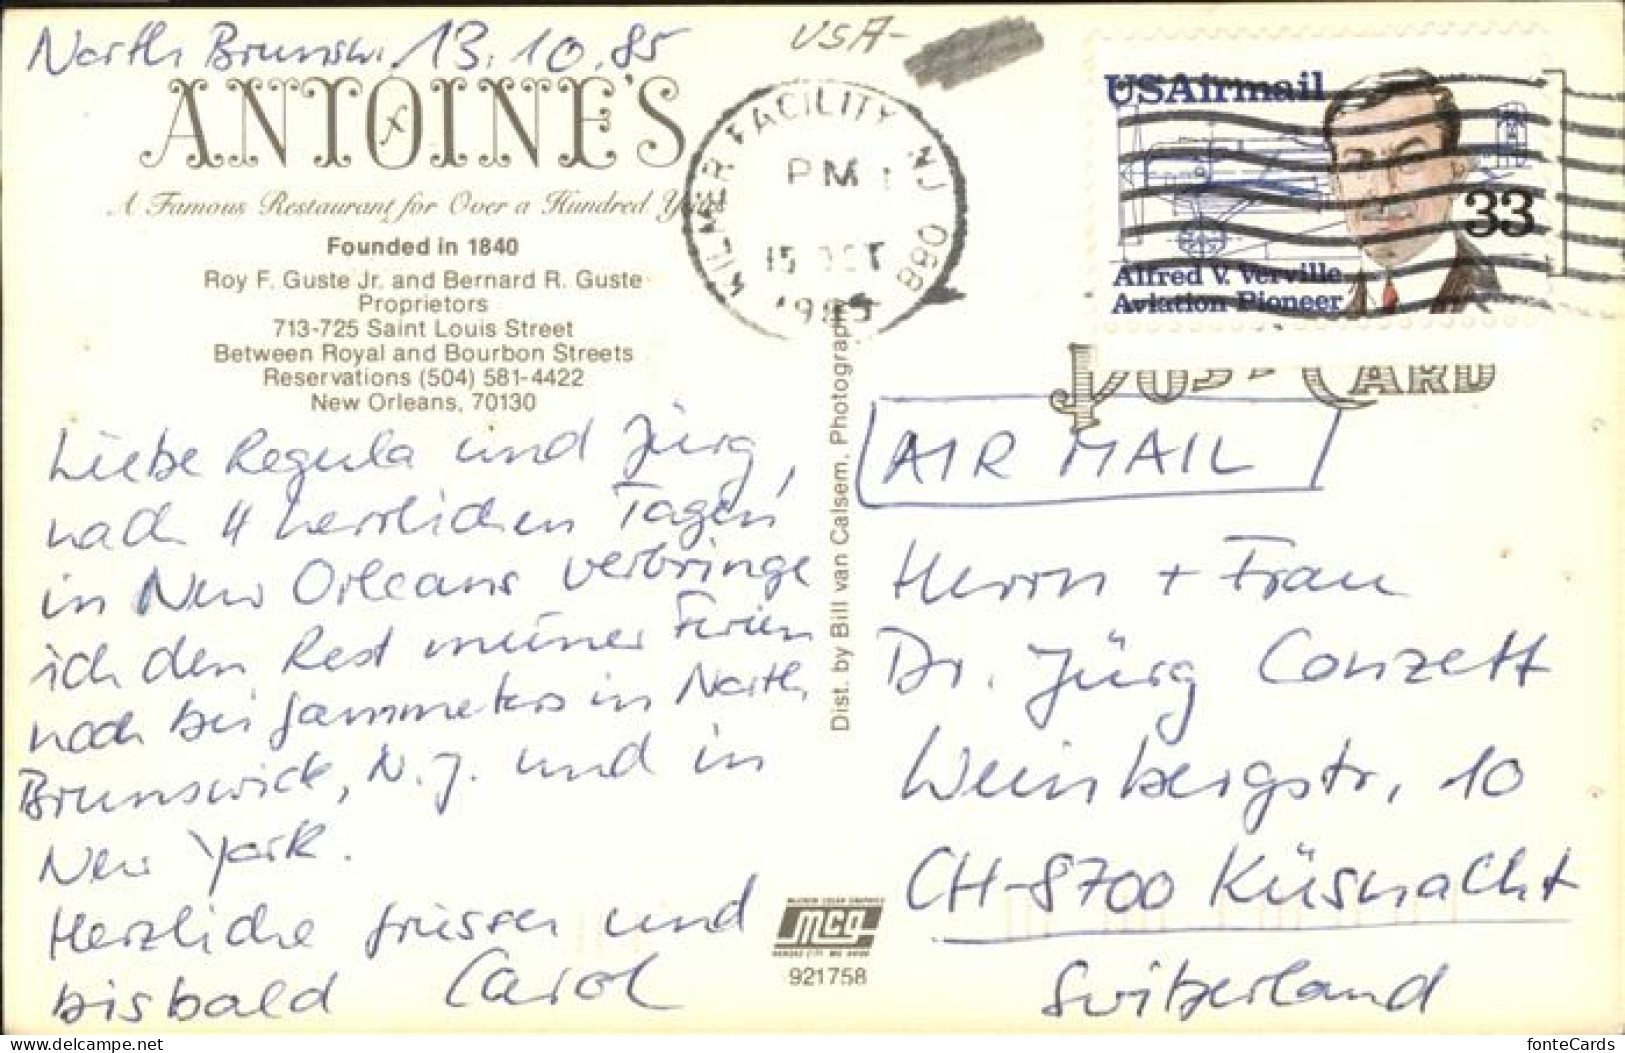 North Brunsw. 13.10.85
USA-
ANTOINE'S
A Famous Restaurant for Over a Hundred Years
Founded in 1840
Roy F. Guste Jr. and Bernard R. Guste
Proprietors
713-725 Saint Louis Street
Between Royal and Bourbon Streets
Reservations (504) 581-4422
New Orleans, 70130
KILMER FACILITY NJ 088
PM
15 OCT
1985
USAirmail
33
Alfred V. Verville
Aviation Pioneer
POST CARD
Liebe Regula und Jürg,
nach 4 herrlichen Tagen
in New Orleans verbringe
ich den Rest meiner Ferien
noch bei Jammeters in North
Brunswick, N.J. und in
New York.
Herzliche Grüsse und
bisbald Carol
Dist. by Bill van Calsem, Photographer
mcg
921758
AIR MAIL
Herrn + Frau
Dr. Jürg Conzett
Weinbergstr. 10
CH-8700 Küsnacht
Switzerland
delcampe.net
fonteCards